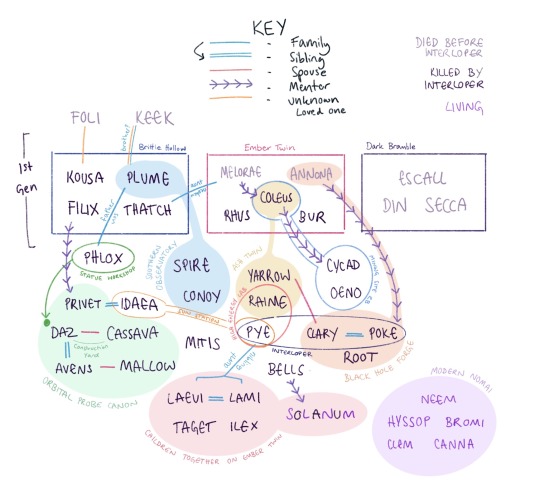 KEY
Family
Sibling
Spouse
Mentor
Unknown
Loved one
DIED BEFORE
INTERLOPER
KILLED BY
INTERLOPER
LIVING
FOLI
KEEK
1st
Gen
brothers
Brittle Hollow
KOUSA
PLUME
FILIX
THATCH
father
son
Ember Twin
MELORAE
ANNONA
COLEUS
RHUS
BUR
Dark Bramble
ESCALL
DIN
SECCA
PHLOX
STATUE WORKSHOP
SOUTHERN
OBSERVATORY
SPIRE
CONOY
ASH TWIN
YARROW
RAMIE
HIGH ENERGY LAB
PYE
CYCAD
OENO
PRIVET
IDAEA
SUN STATION
DAZ
CASSAVA
Construction
Yard
AVENS
MALLOW
ORBITAL PROBE CANON
MITIS
INTERLOPER
CLARY
POKE
ROOT
BLACK HOLE FORGE
BELLS
SOLANUM
LAEVI
LAMI
TAGET
ILEX
CHILDREN TOGETHER ON EMBER TWIN
MODERN NOMAI
NEEM
HYSSOP
BROMI
CLEM
CANNA